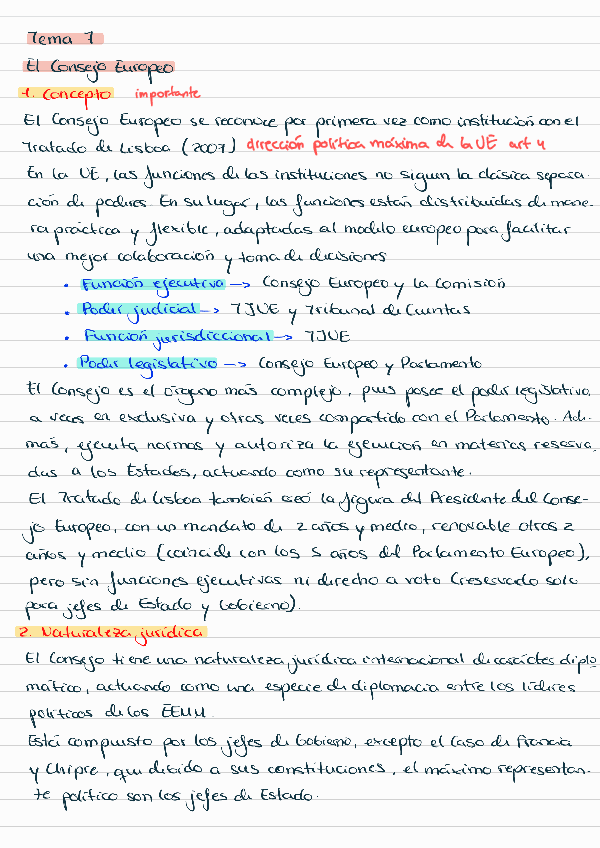 Tema 7
El Consejo Europeo
1. Concepto importante
El Consejo Europeo se reconoce por primera vez como institución con el
Tratado de Lisboa (2007) dirección política máxima de la UE art 4
En la UE, las funciones de las instituciones no siguen la clásica separa-
ción de poderes. En su lugar, las funciones están distribuidas de mane-
ra práctica y flexible, adaptadas al modelo europeo para facilitar
una mejor colaboración y toma de decisiones
• Función ejecutiva -> Consejo Europeo y la Comisión
• Poder judicial -> TJUE y Tribunal de Cuentas
• Función jurisdiccional -> TJUE
• Poder legislativo -> Consejo Europeo y Parlamento
El Consejo es el órgano más complejo, pues posee el poder legislativo,
a veces en exclusiva y otras veces compartido con el Parlamento. Ade-
más, ejecuta normas y autoriza la ejecución en materias reserva-
das a los Estados, actuando como su representante.
El Tratado de Lisboa también creó la figura del Presidente del Conse-
jo Europeo, con un mandato de 2 años y medio, renovable otros 2
años y medio (coincide con los 5 años del Parlamento Europeo),
pero sin funciones ejecutivas ni derecho a voto (reservado solo
para jefes de Estado y Gobierno).
2. Naturaleza jurídica
El Consejo tiene una naturaleza jurídica internacional de carácter diplo
mático, actuando como una especie de diplomacia entre los líderes
políticos de los EEMM.
Está compuesto por los jefes de Gobierno, excepto el caso de Francia
y Chipre, que debido a sus constituciones, el máximo representan-
te político son los jefes de Estado.